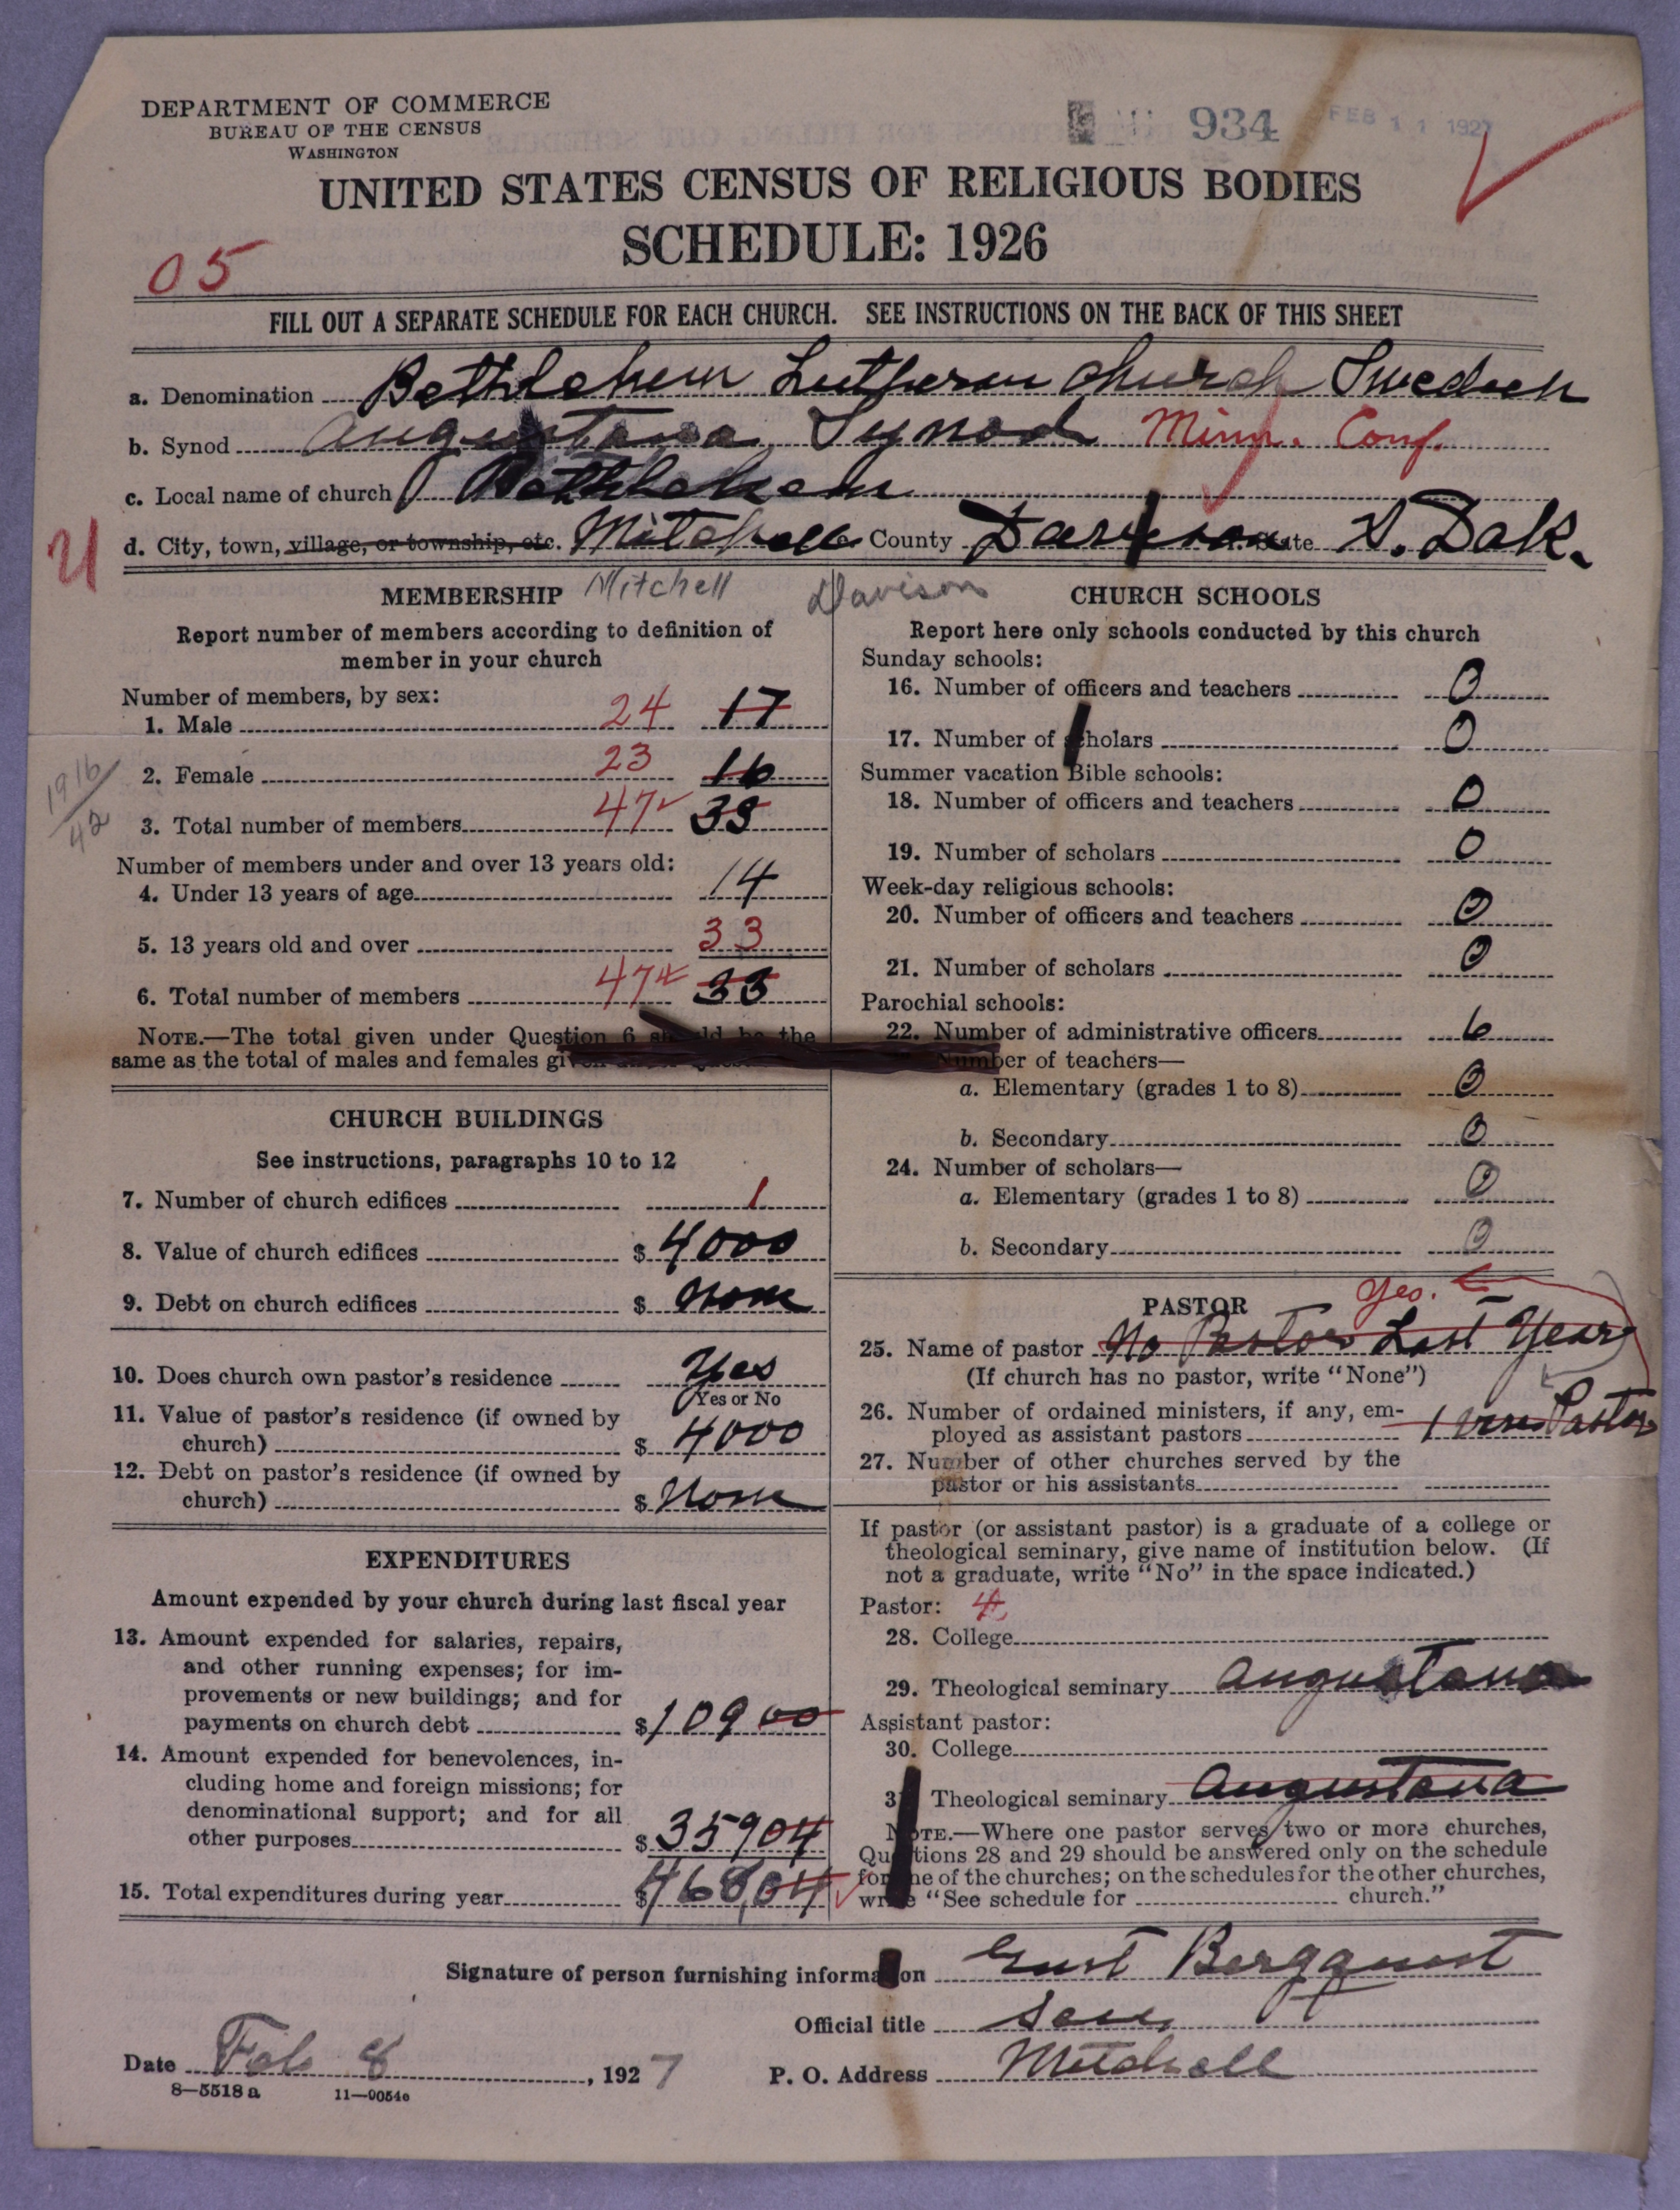 DEPARTMENT OF COMMERCE
BUREAU OF THE CENSUS
WASHINGTON
934 FEB 11 1927
UNITED STATES CENSUS OF RELIGIOUS BODIES
SCHEDULE: 1926
05
FILL OUT A SEPARATE SCHEDULE FOR EACH CHURCH. SEE INSTRUCTIONS ON THE BACK OF THIS SHEET
a. Denomination Bethlehem Lutheran Church Swedish
b. Synod Augustana Synod Minn. Conf.
c. Local name of church Bethlehem
d. City, town, village, or township, etc. Mitchell County Davison State S. Dak.
Mitchell Davison
MEMBERSHIP
Report number of members according to definition of
member in your church
Number of members, by sex:
1. Male 24 17
2. Female 23 16
1916/42
3. Total number of members 47 33
Number of members under and over 13 years old:
4. Under 13 years of age 14
5. 13 years old and over 33
6. Total number of members 47 33
NOTE.—The total given under Question 6 should be the
same as the total of males and females given
CHURCH BUILDINGS
See instructions, paragraphs 10 to 12
7. Number of church edifices 1
8. Value of church edifices $ 4000
9. Debt on church edifices $ None
10. Does church own pastor's residence Yes
(Yes or No
11. Value of pastor's residence (if owned by
church) $ 4000
12. Debt on pastor's residence (if owned by
church) $ None
EXPENDITURES
Amount expended by your church during last fiscal year
13. Amount expended for salaries, repairs,
and other running expenses; for im-
provements or new buildings; and for
payments on church debt $ 109 00
14. Amount expended for benevolences, in-
cluding home and foreign missions; for
denominational support; and for all
other purposes $ 359 04
15. Total expenditures during year $ 468,04
CHURCH SCHOOLS
Report here only schools conducted by this church
Sunday schools:
16. Number of officers and teachers 0
17. Number of scholars 0
Summer vacation Bible schools:
18. Number of officers and teachers 0
19. Number of scholars 0
Week-day religious schools:
20. Number of officers and teachers 0
21. Number of scholars 0
Parochial schools:
22. Number of administrative officers 6
Number of teachers—
a. Elementary (grades 1 to 8) 0
b. Secondary 0
24. Number of scholars—
a. Elementary (grades 1 to 8) 0
b. Secondary 0
PASTOR
Yes.
25. Name of pastor No Pastor Last Year
(If church has no pastor, write "None")
26. Number of ordained ministers, if any, em-
ployed as assistant pastors 1 Pastor
27. Number of other churches served by the
pastor or his assistants
If pastor (or assistant pastor) is a graduate of a college or
theological seminary, give name of institution below. (If
not a graduate, write "No" in the space indicated.)
Pastor: 4
28. College
29. Theological seminary Augustana
Assistant pastor:
30. College
3 Theological seminary Augustana
NOTE.—Where one pastor serves two or more churches,
Questions 28 and 29 should be answered only on the schedule
for one of the churches; on the schedules for the other churches,
write "See schedule for church."
Signature of person furnishing information Gust Bergquist
Official title Sec,
Date Feb 8, 1927 P. O. Address Mitchell
8—5518 a 11—9054c